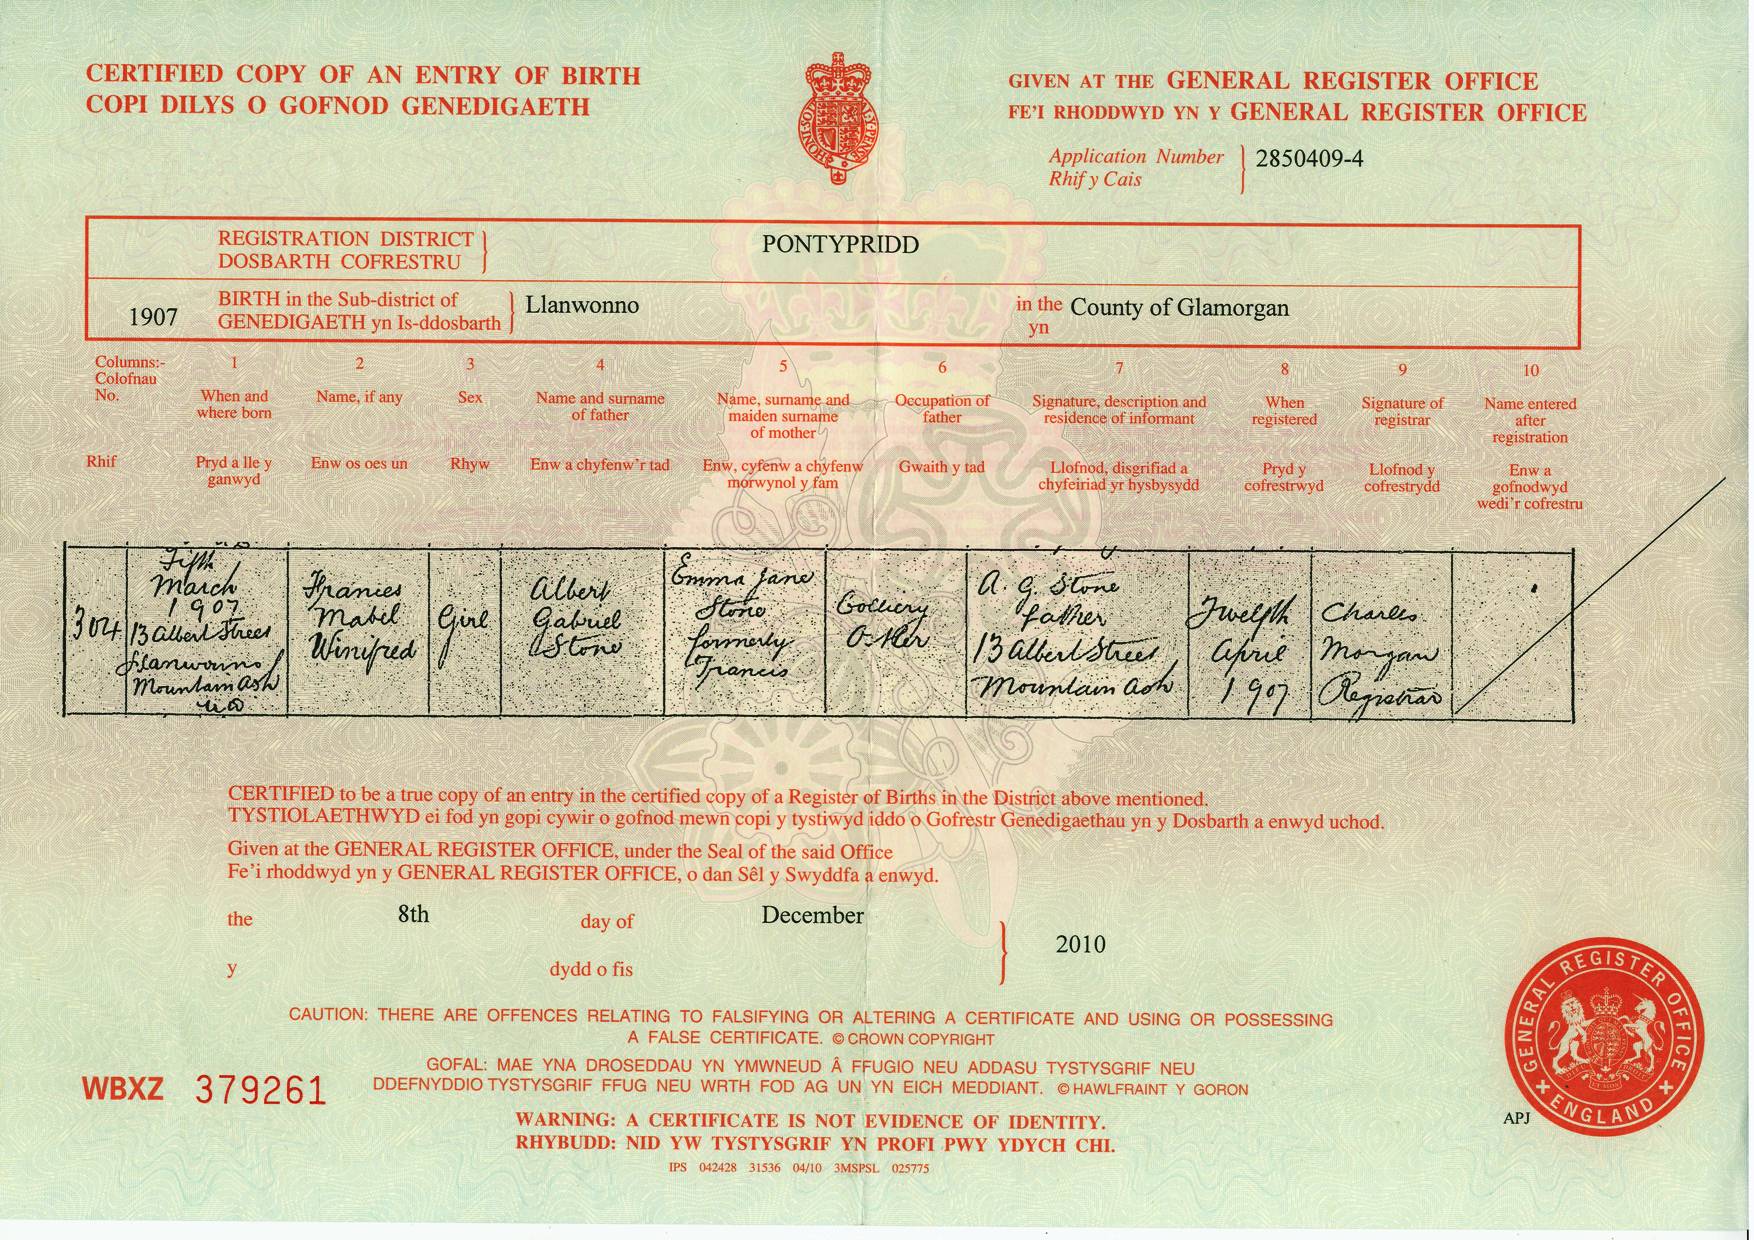 CERTIFIED COPY OF AN ENTRY OF BIRTH
COPI DILYS O GOFNOD GENEDIGAETH
GIVEN AT THE GENERAL REGISTER OFFICE
FE'I RHODDWYD YN Y GENERAL REGISTER OFFICE
Application Number
Rhif y Cais
2850409-4
REGISTRATION DISTRICT
DOSBARTH COFRESTRU
PONTYPRIDD
1907
BIRTH in the Sub-district of
GENEDIGAETH yn Is-ddosbarth
Llanwonno
in the
yn
County of Glamorgan
Columns:-
Colofnau
No.
Rhif
1
When and
where born
Pryd a lle y
ganwyd
2
Name, if any
Enw os oes un
3
Sex
Rhyw
4
Name and surname
of father
Enw a chyfenw'r tad
5
Name, surname and
maiden surname
of mother
Enw, cyfenw a chyfenw
morwynol y fam
6
Occupation of
father
Gwaith y tad
7
Signature, description and
residence of informant
Llofnod, disgrifiad a
chyfeiriad yr hysbysydd
8
When
registered
Pryd y
cofrestrwyd
9
Signature of
registrar
Llofnod y
cofrestrydd
10
Name entered
after
registration
Enw a
gofnodwyd
wedi'r cofrestru
304
Fifth
March
1907
13 Albert Street
Llanwonno
Mountain Ash
Frances
Mabel
Winifred
Girl
Albert
Gabriel
Stone
Emma Jane
Stone
formerly
Francis
Colliery
Ostler
A. G. Stone
father
13 Albert Street
Mountain Ash
Twelfth
April
1907
Charles
Morgan
Registrar
CERTIFIED to be a true copy of an entry in the certified copy of a Register of Births in the District above mentioned.
TYSTIOLAETHWYD ei fod yn gopi cywir o gofnod mewn copi y tystiwyd iddo o Gofrestr Genedigaethau yn y Dosbarth a enwyd uchod.
Given at the GENERAL REGISTER OFFICE, under the Seal of the said Office
Fe'i rhoddwyd yn y GENERAL REGISTER OFFICE, o dan Sêl y Swyddfa a enwyd.
the 8th day of December
y dydd o fis
2010
CAUTION: THERE ARE OFFENCES RELATING TO FALSIFYING OR ALTERING A CERTIFICATE AND USING OR POSSESSING
A FALSE CERTIFICATE. © CROWN COPYRIGHT
GOFAL: MAE YNA DROSEDDAU YN YMWNEUD Â FFUGIO NEU ADDASU TYSTYSGRIF NEU
DDEFNYDDIO TYSTYSGRIF FFUG NEU WRTH FOD AG UN YN EICH MEDDIANT. © HAWLFRAINT Y GORON
WBXZ 379261
WARNING: A CERTIFICATE IS NOT EVIDENCE OF IDENTITY.
RHYBUDD: NID YW TYSTYSGRIF YN PROFI PWY YDYCH CHI.
IPS 042428 31536 04/10 3MSPSL 025775
GENERAL REGISTER OFFICE
ENGLAND
APJ